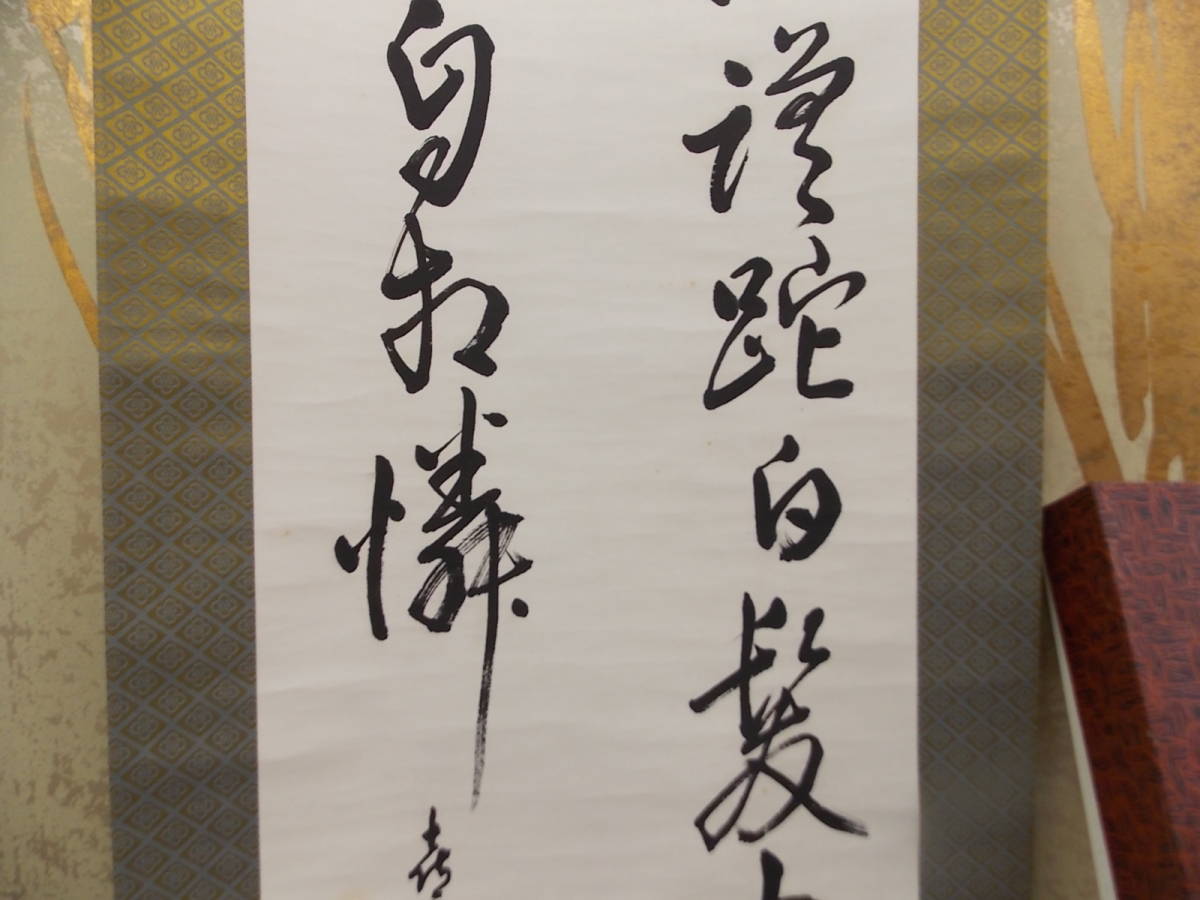 蹉跎白髪
自相憐